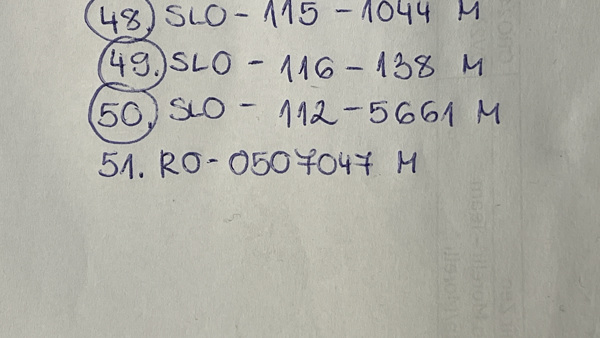 48. SLO - 115 - 1044 M
49. SLO - 116 - 138 M
50. SLO - 112 - 5661 M
51. RO - 0507047 M